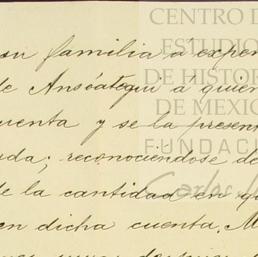 su familia á expen
de Ansóategui á quien
cuenta y se la presen
uda; reconociéndose de
de la cantidad en qu
en dicha cuenta. M
CENTRO D
ESTUDIO
DE HISTOR
DE MEXIC
FUNDACI
Carlos